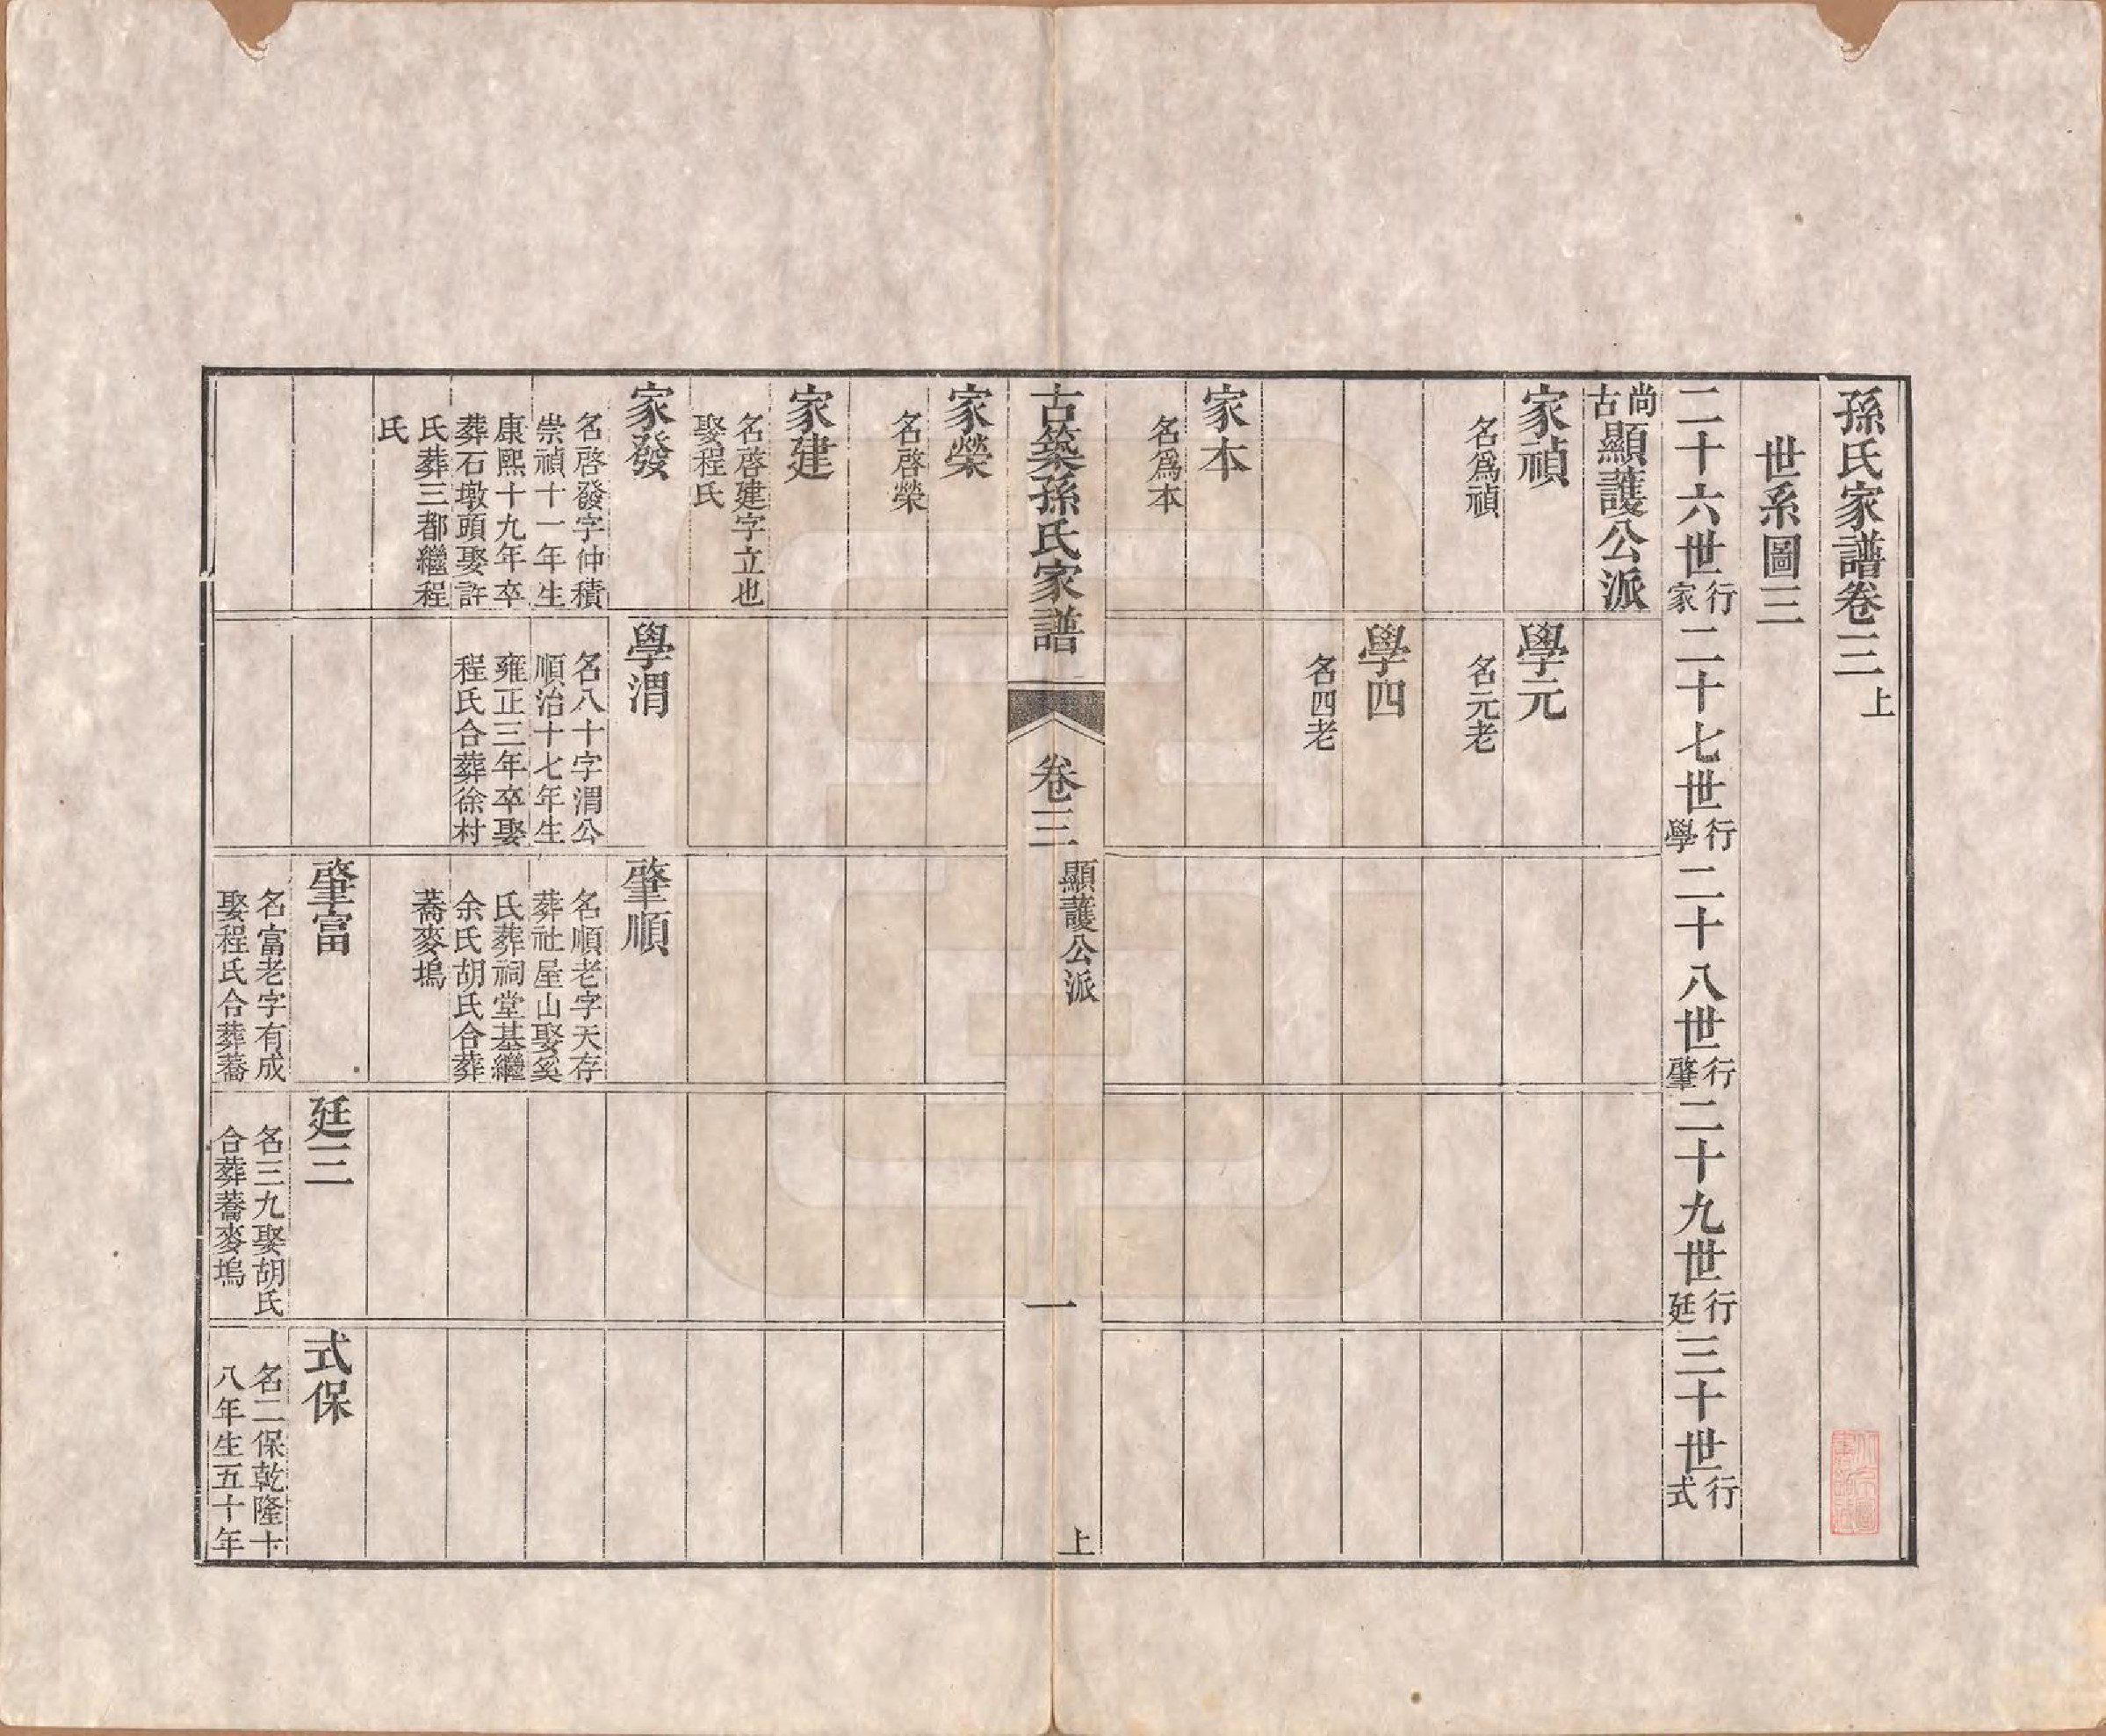 孫氏家譜卷三上
世系圖三
二十六世家行二十七世學行二十八世肇行二十九世廷行三十世式行
尚古顯護公派
家禎
名爲禎
學元
名元老
學四
名四老
家本
名爲本
古築孫氏家譜 卷三 顯護公派 一 上
家榮
名啓榮
家建
名啓建字立也
娶程氏
家發
名啓發字仲積
崇禎十一年生
康熙十九年卒
葬石墩頭娶許
氏葬三都繼程
氏
學渭
名八十字渭公
順治十七年生
雍正三年卒娶
程氏合葬徐村
肇順
名順老字天存
葬社屋山娶奚
氏葬祠堂基繼
余氏胡氏合葬
蕎麥塢
肇富
名富老字有成
娶程氏合葬蕎
廷三
名三九娶胡氏
合葬蕎麥塢
式保
名二保乾隆十
八年生五十年